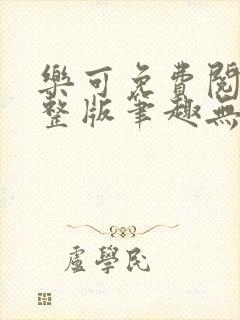 樂可免費閱
整版筆趣無
盧學民